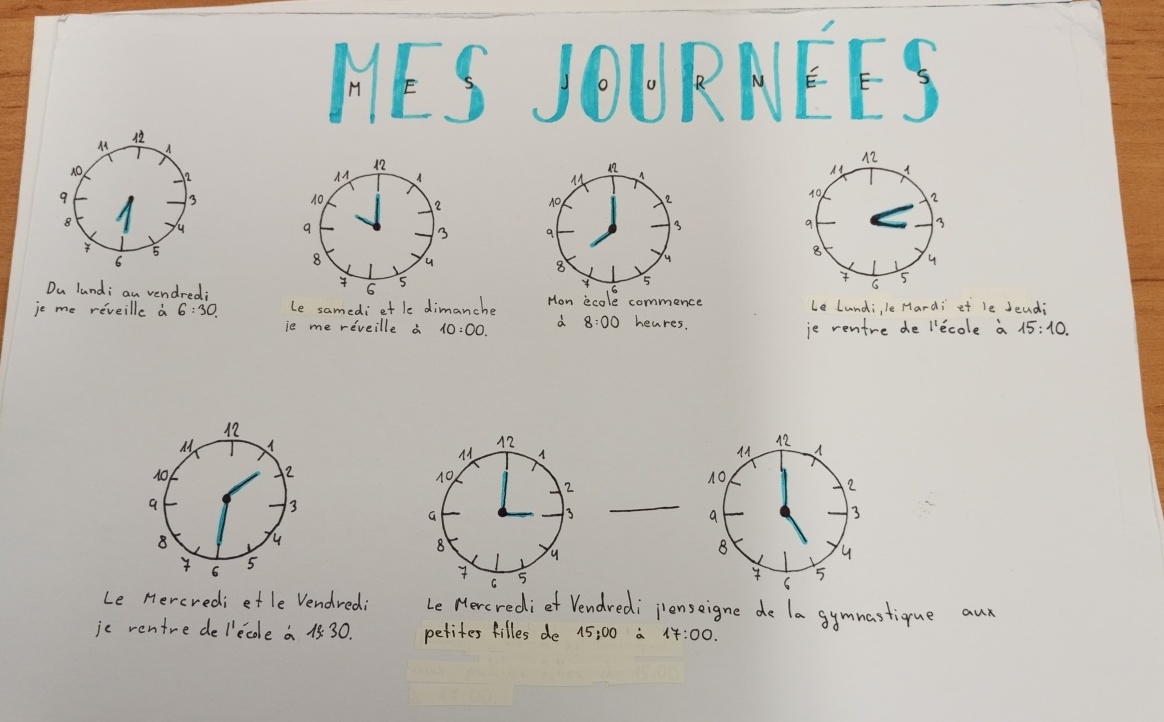 MES JOURNÉES
M E S J O U R N É E S
12 1 2 3 4 5 6 7 8 9 10 11
Du lundi au vendredi
je me réveille à 6:30.
12 1 2 3 4 5 6 7 8 9 10 11
Le samedi et le dimanche
je me réveille à 10:00.
12 1 2 3 4 5 6 7 8 9 10 11
Mon école commence
à 8:00 heures.
12 1 2 3 4 5 6 7 8 9 10 11
Le Lundi, le Mardi et le Jeudi
je rentre de l'école à 15:10.
12 1 2 3 4 5 6 7 8 9 10 11
Le Mercredi et le Vendredi
je rentre de l'école à 13:30.
12 1 2 3 4 5 6 7 8 9 10 11
12 1 2 3 4 5 6 7 8 9 10 11
Le Mercredi et Vendredi j'enseigne de la gymnastique aux
petites filles de 15:00 à 17:00.